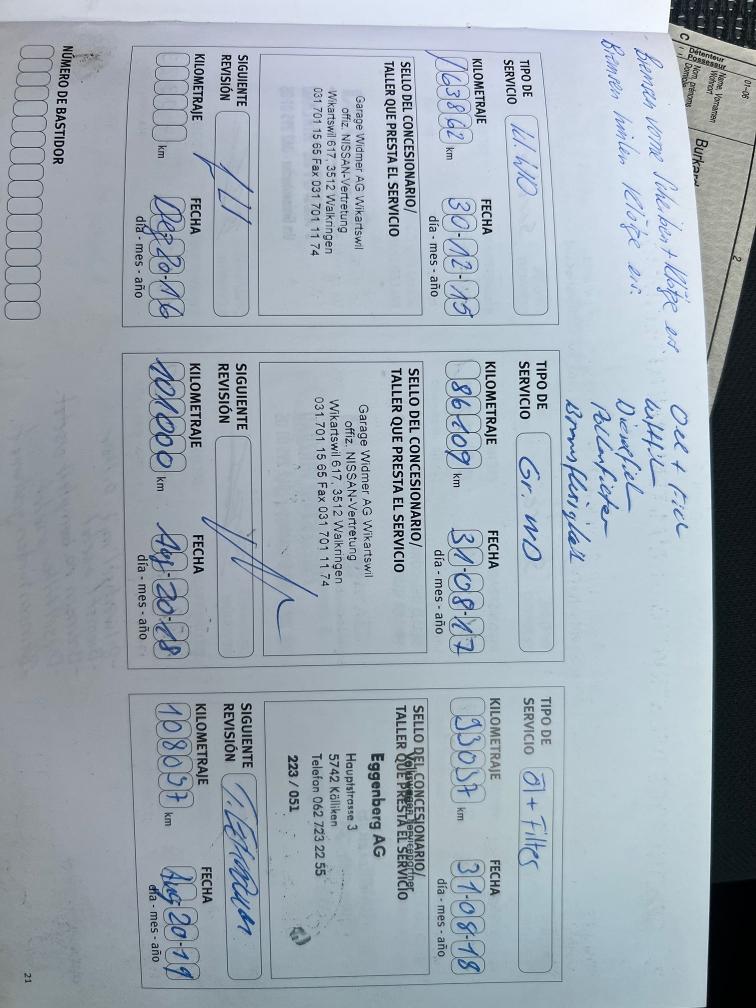 Bremsen vorne Scheiben + Klötze ers.
Bremsen hinten Klötze ers.
TIPO DE
SERVICIO
KILOMETRAJE
63862 km
FECHA
30-12-15
día - mes - año
SELLO DEL CONCESIONARIO/
TALLER QUE PRESTA EL SERVICIO
Garage Widmer AG Wikartswil
offiz. NISSAN-Vertretung
Wikartswil 617, 3512 Walkringen
031 701 15 65 Fax 031 701 11 74
SIGUIENTE
REVISIÓN
KILOMETRAJE
km
FECHA
Dez-20-16
día - mes - año
NÚMERO DE BASTIDOR
Oel + Filter
Luftfilter
Pollenfilter
Bremsflüssigkeit
TIPO DE
SERVICIO
Gr. WD
KILOMETRAJE
86109 km
FECHA
31-08-17
día - mes - año
SELLO DEL CONCESIONARIO/
TALLER QUE PRESTA EL SERVICIO
Garage Widmer AG Wikartswil
offiz. NISSAN-Vertretung
Wikartswil 617, 3512 Walkringen
031 701 15 65 Fax 031 701 11 74
SIGUIENTE
REVISIÓN
KILOMETRAJE
101000 km
FECHA
Aug-20-18
día - mes - año
TIPO DE
SERVICIO
Öl + Filter
KILOMETRAJE
93037 km
FECHA
31-08-18
día - mes - año
SELLO DEL CONCESIONARIO/
TALLER QUE PRESTA EL SERVICIO
Eggenberg AG
Hauptstrasse 3
5742 Kölliken
Telefon 062 723 22 55
223 / 051
SIGUIENTE
REVISIÓN
KILOMETRAJE
108037 km
FECHA
Aug-20-19
día - mes - año
21
C
Détenteur
Possesseur
Name, Vornamen
Wohnort
Nom, prénoms
01-06
2